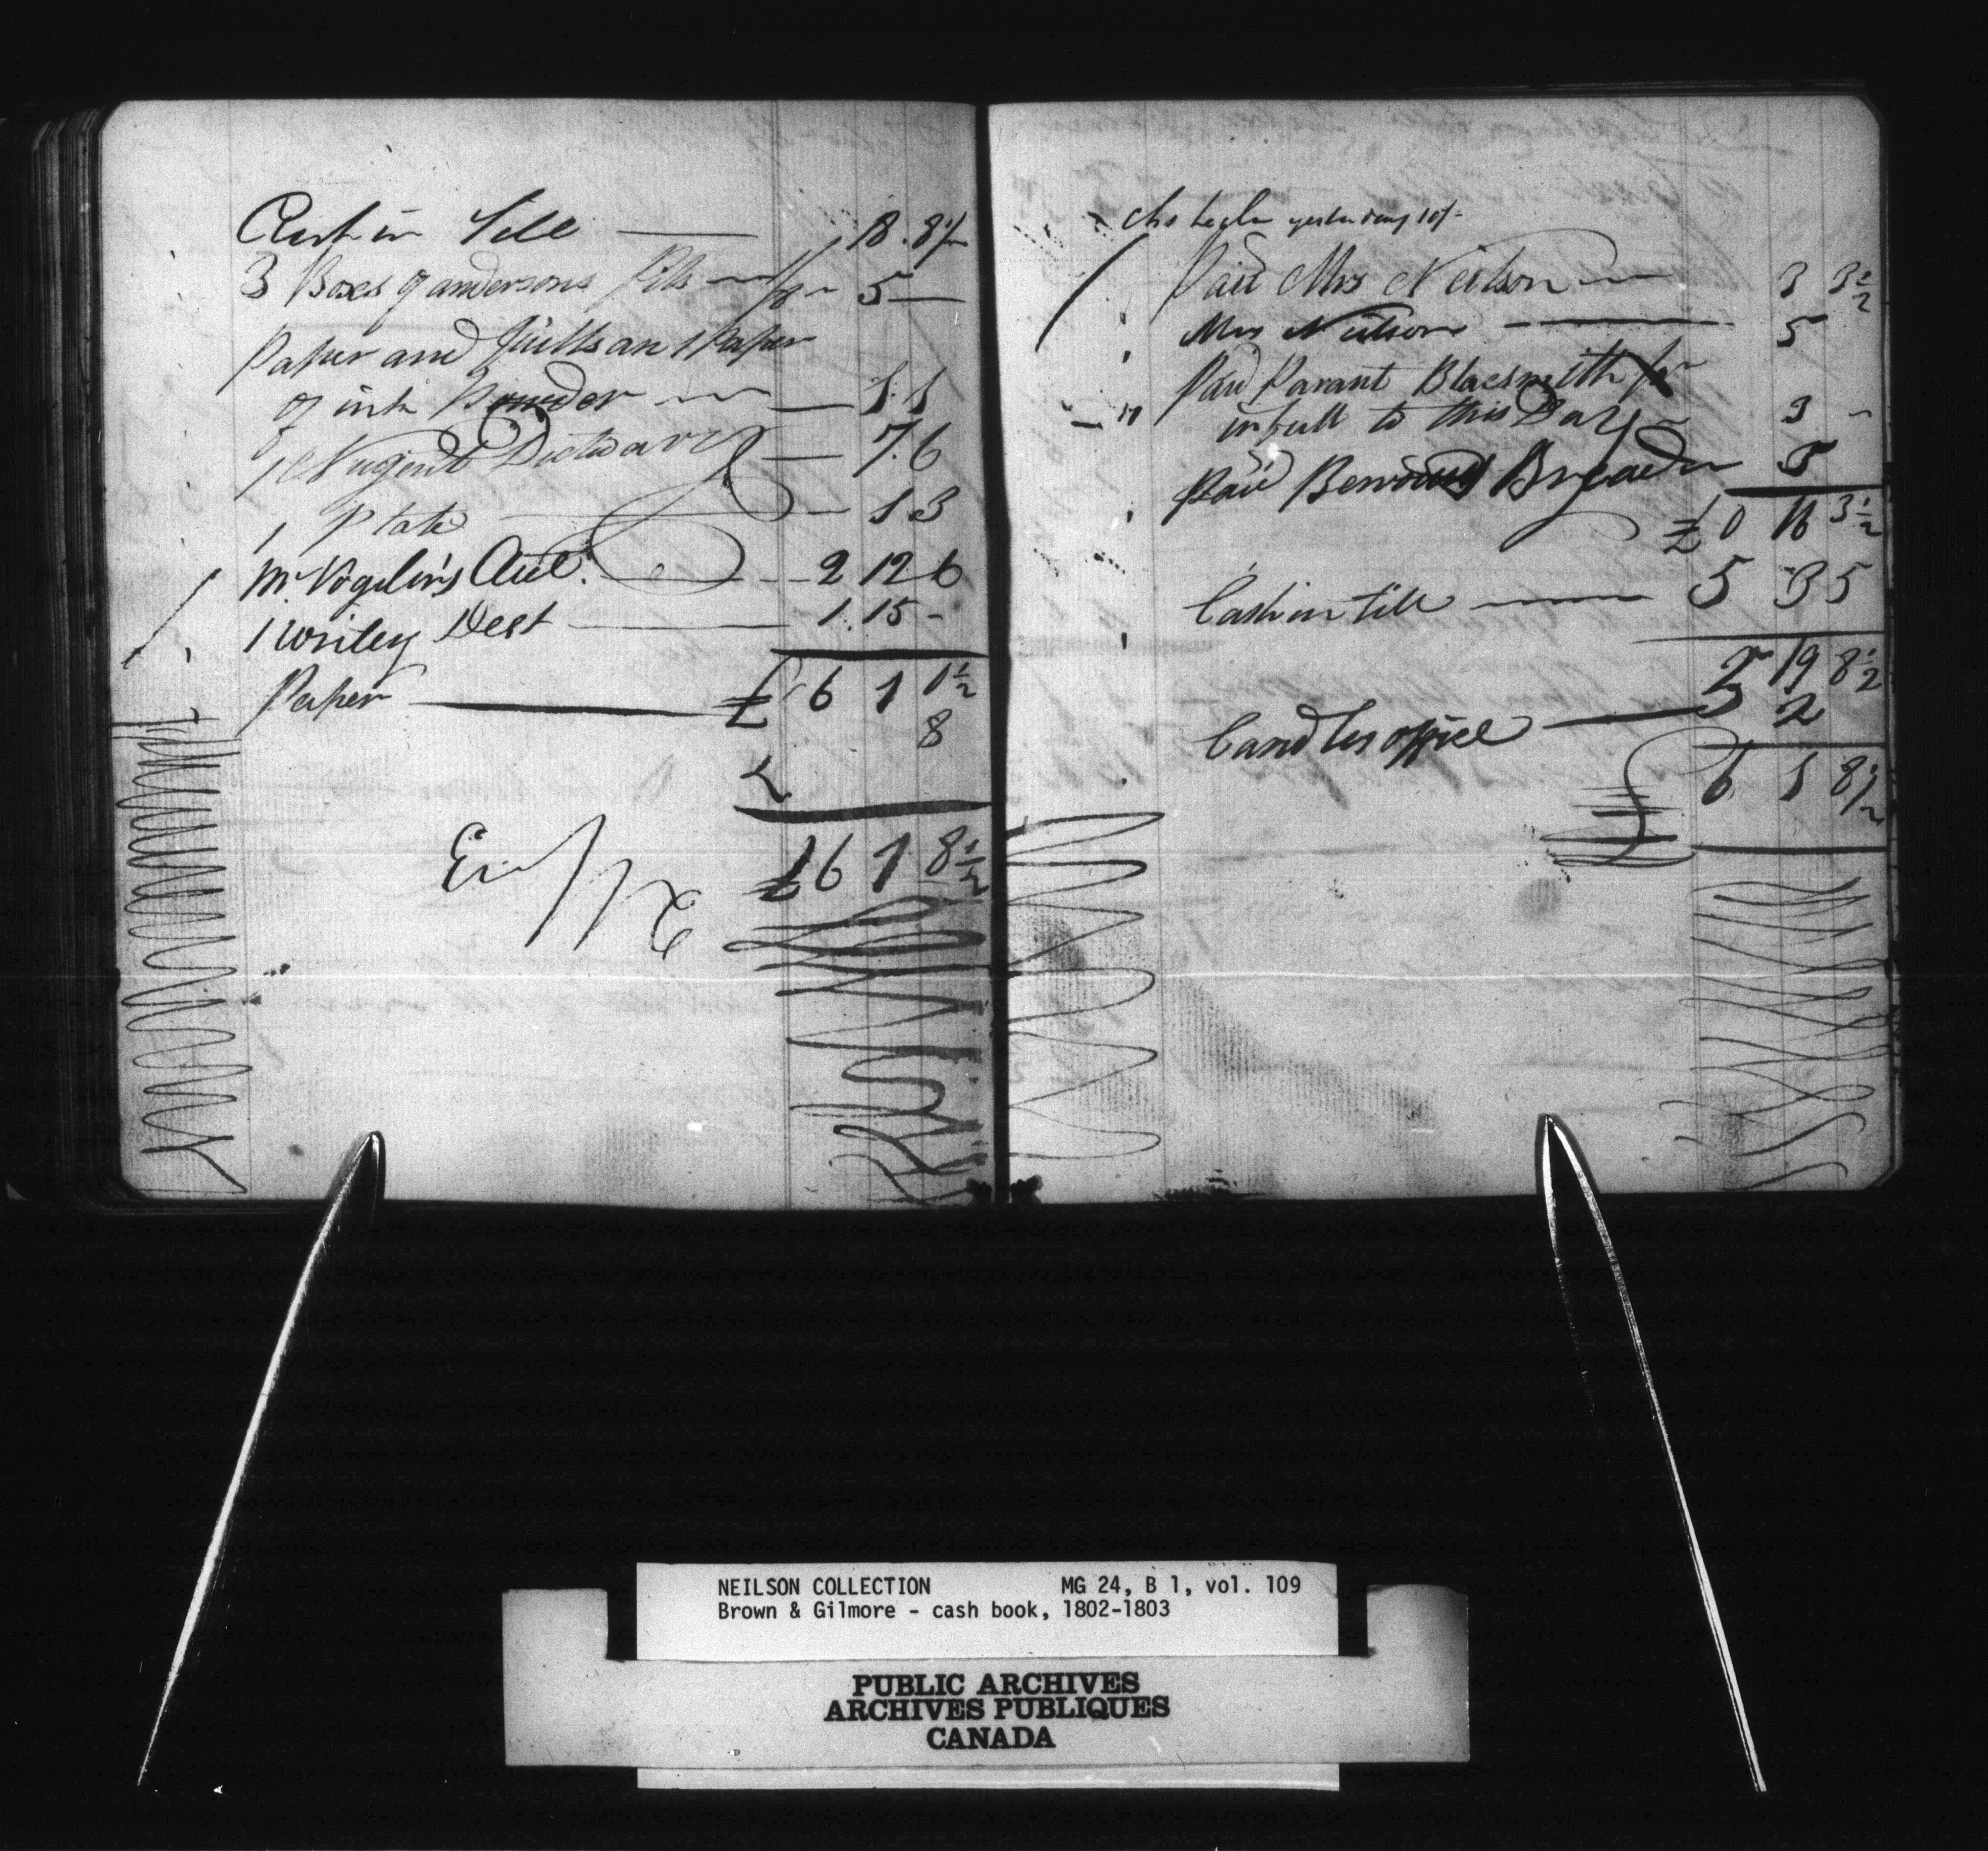 Cash in Till — 18. 8½
3 Boxes of andersons Pills — 1/8 — 5 —
Paper and Quills an 1 Paper
of ink Powder — 1. 1
1 Nugents Dictioary — 7. 6
1 Plate — 1 3
Mr Vogelin's Acct. — 2 12 6
1 writey Desk — 1. 15 -
£ 6 1 0½
Paper — 8
£ 6 1 8½
yesterday 10/-
Paid Mrs Neilson — 3 3½
Mrs Neilson — 5
Paid Parant Blacsmitth for
in full to this Day — 3 -
Paid Bread — 5
£ 0 16 3½
Cash in till — 5 3 5
5 19 8½
Candles office — 2
6 1 8½
NEILSON COLLECTION MG 24, B 1, vol. 109
Brown & Gilmore - cash book, 1802-1803
PUBLIC ARCHIVES
ARCHIVES PUBLIQUES
CANADA